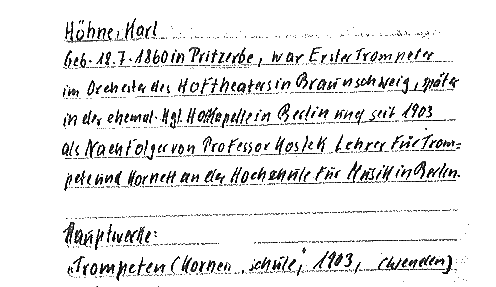 Höhne, Karl
Geb. 12.7.1860 in Pritzerbe, war Erster Trompeter
im Orchester des Hoftheaters in Braunschweig, später
in der ehemal. Kgl. Hofkapelle in Berlin und seit 1903
als Nachfolger von Professor Kosleck Lehrer für Trom=
pete und Kornett an der Hochschule für Musik in Berlin.
Hauptwerke:
"Trompeten (Kornett schule", 1903, (wenden)